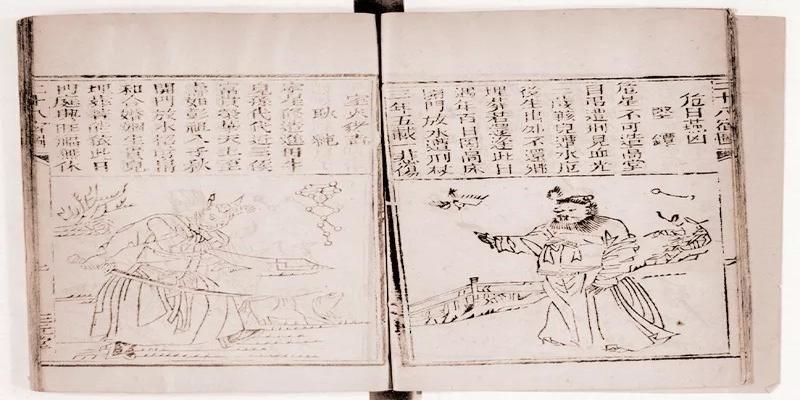 二十八宿圖
危月燕凶
堅鐔
危星不可造高堂
自吊遭刑見血光
三歲孩兒遭水厄
後生出外不還鄉
埋葬若還逢此日
週年百日臥高床
開門放水遭刑杖
三年五載一悲傷
室火豬吉
耿純
室星修造進田牛
兒孫代代近王侯
富貴榮華天上至
壽如彭祖八千秋
開門放水招財
和合婚姻生貴兒
埋葬若能依此日
門庭興旺福無休
二十八宿圖